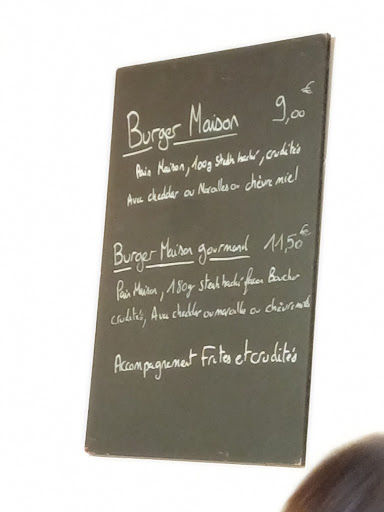 Burger Maison 9,00 €
Pain Maison, 100g steak haché, crudités
Avec cheddar ou Maroilles ou chèvre miel
Burger Maison gourmand 11,50 €
Pain Maison, 180g steak haché façon Boucher
crudités, Avec cheddar ou maroilles ou chèvre miel
Accompagnement Frites et crudités